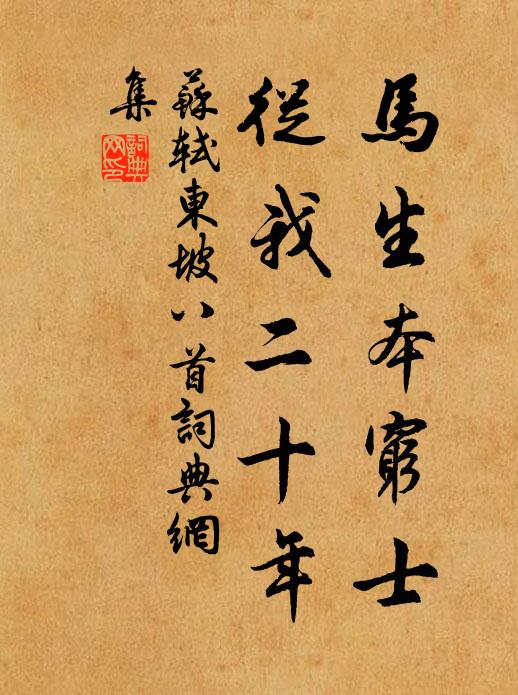 馬生本窮士
從我二十年
蘇軾東坡八首詞典網
集
詞典網印